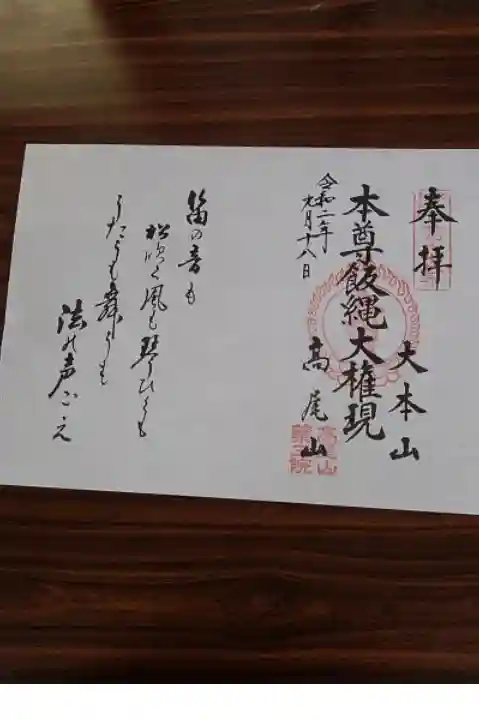 奉拝
大本山
本尊飯縄大権現
高尾山
令和二年
九月十八日
高尾山
薬王院
笛の音も
松吹く風も琴ひくも
うたうも舞うも
法の声ごえ